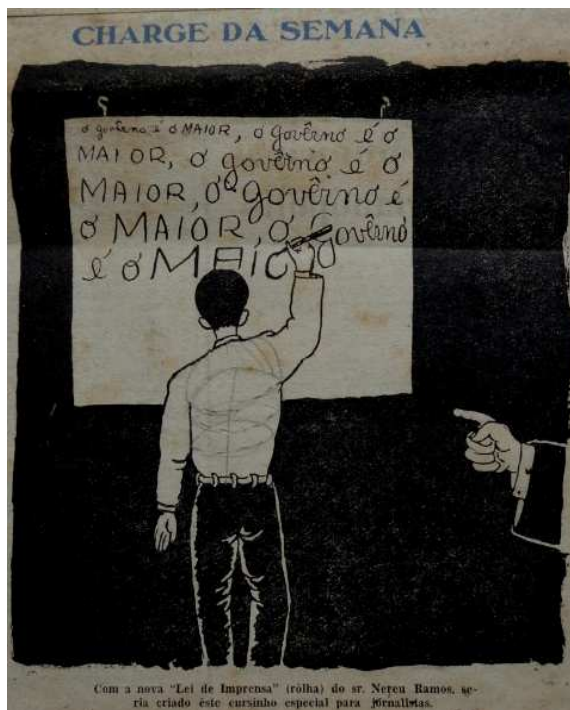 CHARGE DA SEMANA
o govêrno é o MAIOR, o govêrno é o
MAIOR, o govêrno é o
MAIOR, o govêrno é
o MAIOR, o Govêrno
é o MAIO
Com a nova "Lei de Imprensa" (rôlha) do sr. Nereu Ramos, se-
ria criado êste cursinho especial para jornalistas.